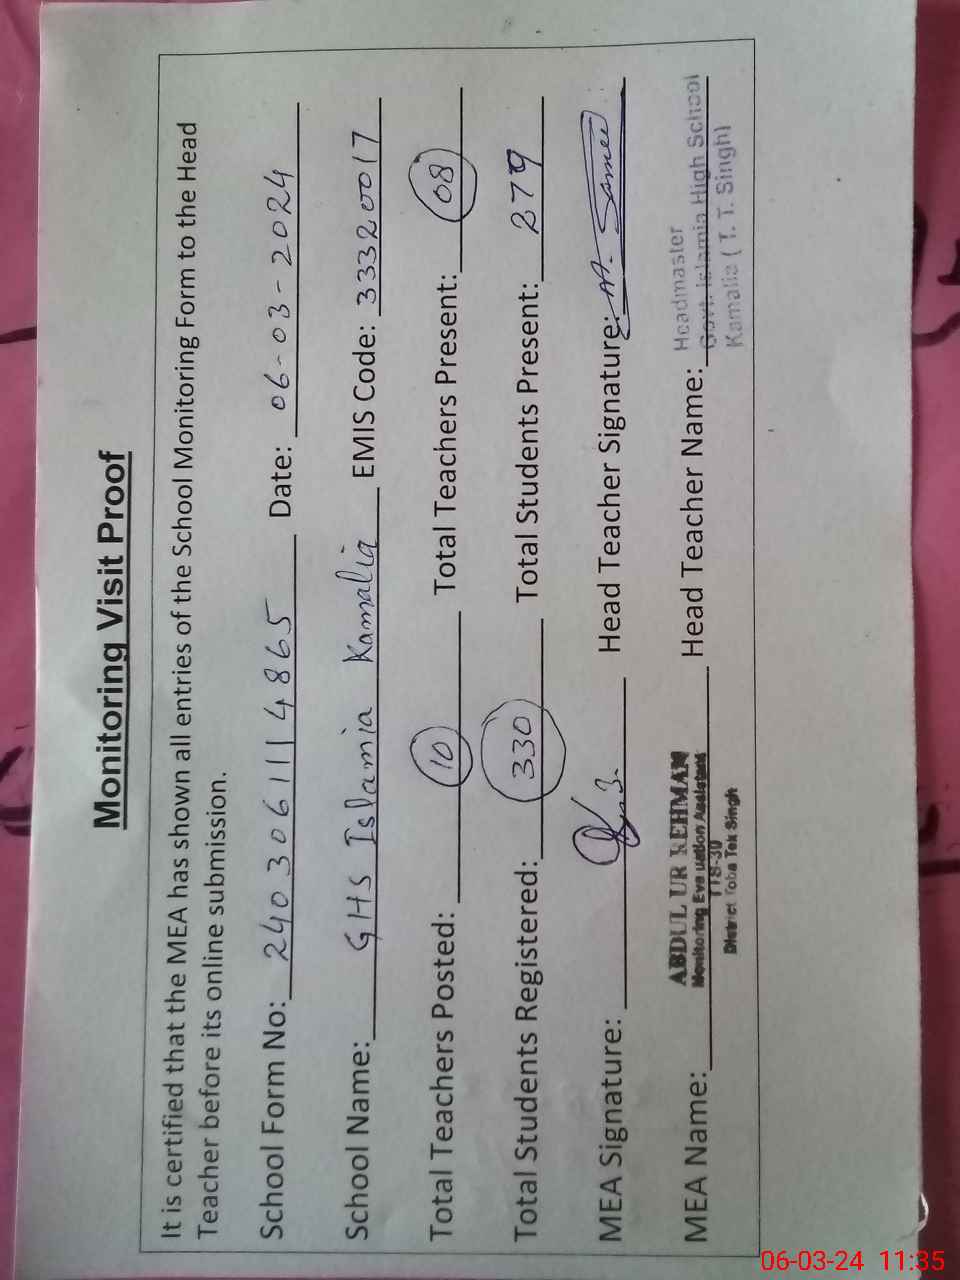 Monitoring Visit Proof
It is certified that the MEA has shown all entries of the School Monitoring Form to the Head
Teacher before its online submission.
School Form No: 2403061114865 Date: 06-03-2024
School Name: GHS Islamia Kamalia EMIS Code: 33320017
Total Teachers Posted: 10 Total Teachers Present: 08
Total Students Registered: 330 Total Students Present: 279
MEA Signature: Head Teacher Signature:
MEA Name: Head Teacher Name:
ABDUL UR REHMAN
Monitoring Evaluation Assistant
TTS-30
District Toba Tek Singh
Headmaster
Govt. Islamia High School
Kamalia ( T. T. Singh)
06-03-24 11:35